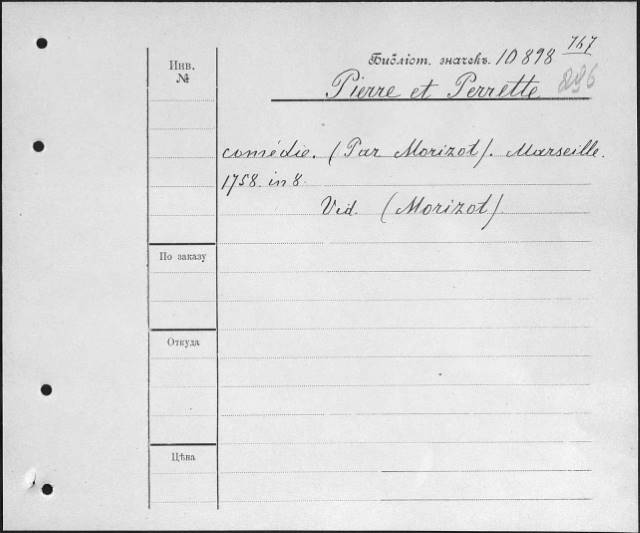 Инв.
№
Библіот. значекъ. 10898 747
Pierre et Perrette 296
comédie. (Par Morizot). Marseille.
1758. in 8.
Vid. (Morizot)
По заказу
Откуда
Цѣна